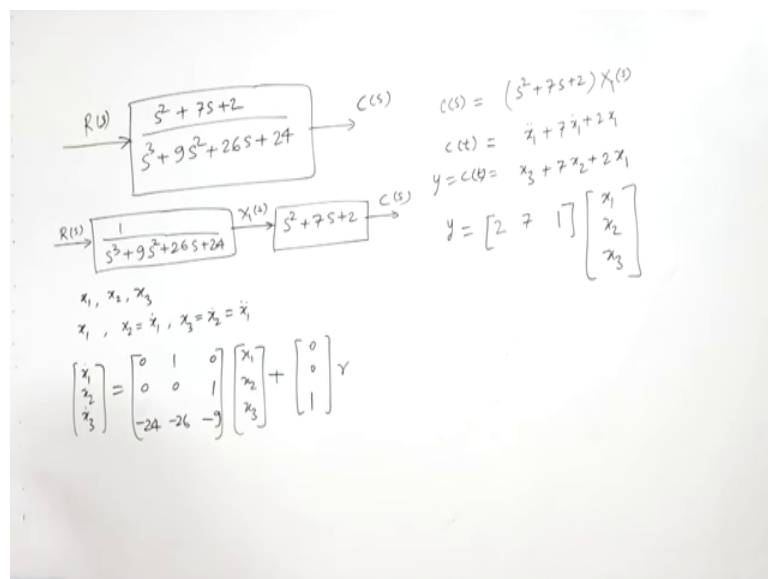 R(s) → [ (s² + 7s + 2) / (s³ + 9s² + 26s + 24) ] → C(s)
R(s) → [ 1 / (s³ + 9s² + 26s + 24) ] → X₁(s) → [ s² + 7s + 2 ] → C(s)
x₁, x₂, x₃
x₁ , x₂ = ẋ₁ , x₃ = ẋ₂ = ẍ₁
[ẋ₁; ẋ₂; ẋ₃] = [0 1 0; 0 0 1; -24 -26 -9] [x₁; x₂; x₃] + [0; 0; 1] r
C(s) = (s² + 7s + 2) X₁(s)
c(t) = ẍ₁ + 7ẋ₁ + 2x₁
y = c(t) = x₃ + 7x₂ + 2x₁
y = [2 7 1] [x₁; x₂; x₃]